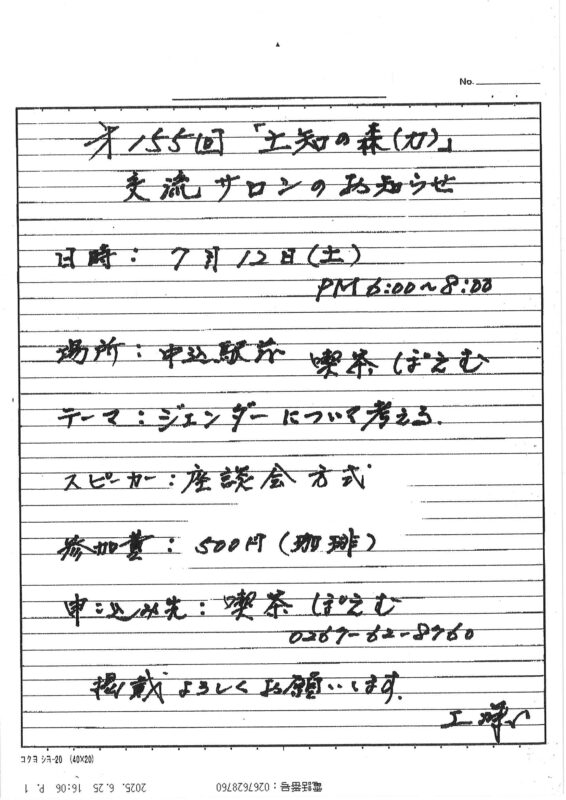 No.
第155回「土知の森(力)」
交流サロンのお知らせ
日時：7月12日(土)
PM 6:00〜8:00
場所：中込駅前 喫茶 ぽえむ
テーマ：ジェンダーについて考える.
スピーカー：座談会方式
参加費：500円(珈琲)
申し込み先：喫茶 ぽえむ
0267-62-8760
掲載よろしくお願いします.
コクヨ シヨ-20 (40×20)
電話番号：0267628760
2025. 6.25 16:06 P. 1